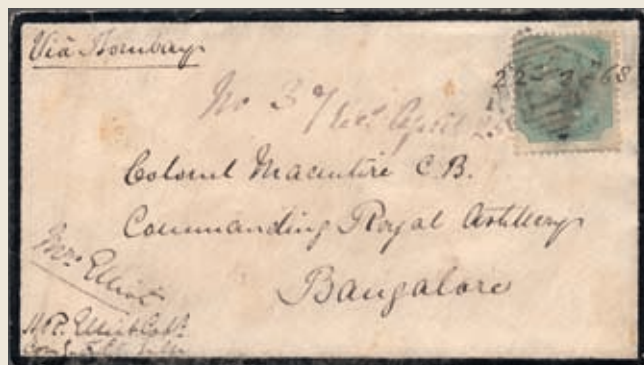 Via Bombay
22-3-68
No 3 of
April
Colonel Macintire C.B.
Commanding Royal Artillery
Bangalore
Mrs Elliot